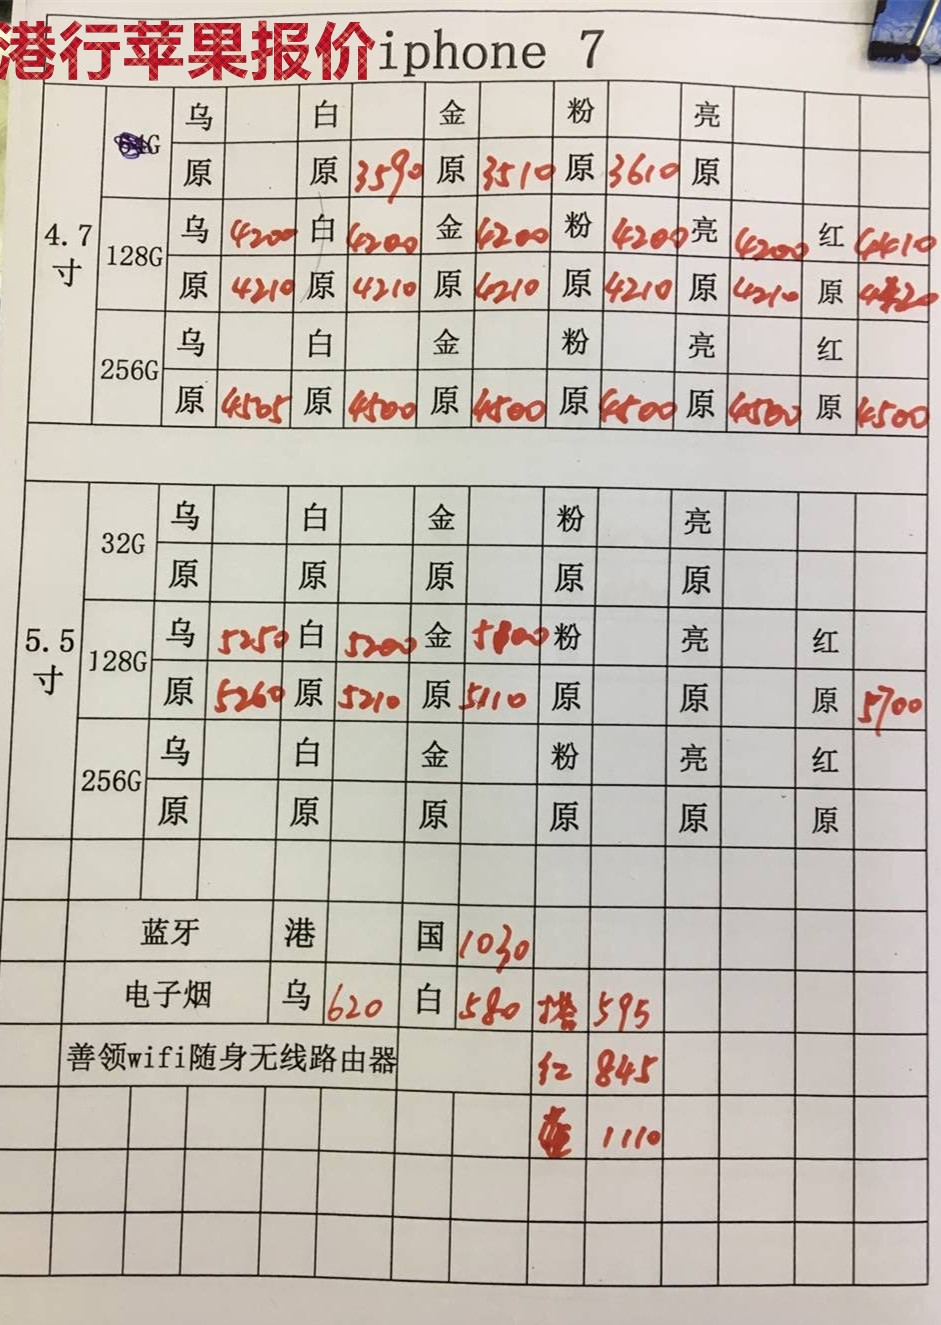 港行苹果报价 iphone 7
乌 白 金 粉 亮
4.7寸 G 原 原 3590 原 3510 原 3610 原
128G 乌 4200 白 4200 金 4200 粉 4200 亮 4200 红 4410
原 4210 原 4210 原 4210 原 4210 原 4210 原
256G 乌 白 金 粉 亮 红
原 4505 原 4500 原 4500 原 4500 原 4500 原 4500
5.5寸 32G 乌 白 金 粉 亮
原 原 原 原 原
128G 乌 5250 白 5200 金 粉 亮 红
原 5260 原 5210 原 5110 原 原 原 5700
256G 乌 白 金 粉 亮 红
原 原 原 原 原 原
蓝牙 港 国 1030
电子烟 乌 620 白 580 595
善领wifi随身无线路由器 红 845
1110